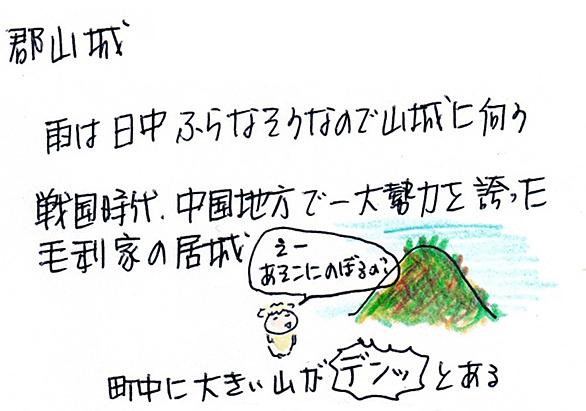 郡山城
雨は日中ふらなそうなので山城に向う
戦国時代、中国地方で一大勢力を誇った
毛利家の居城
えー
あそこにのぼるの?
町中に大きい山がデンッとある